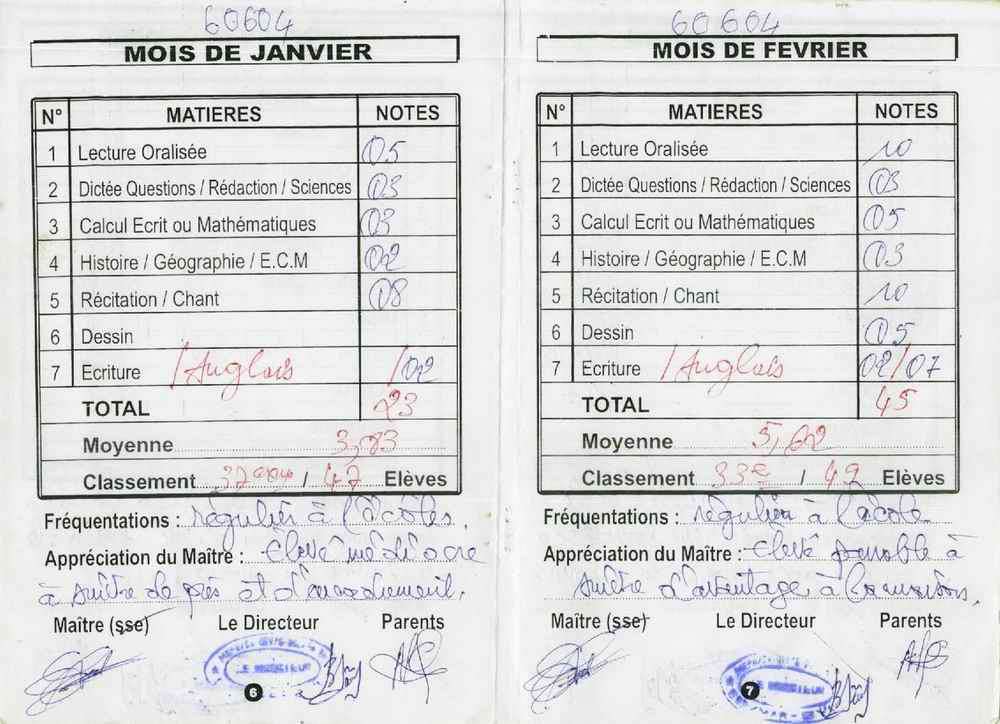 60604
MOIS DE JANVIER
N° MATIERES NOTES
1 Lecture Oralisée 05
2 Dictée Questions / Rédaction / Sciences 03
3 Calcul Ecrit ou Mathématiques 03
4 Histoire / Géographie / E.C.M 02
5 Récitation / Chant 08
6 Dessin
7 Ecriture /Anglais /02
TOTAL 23
Moyenne 3,83
Classement 37 / 47 Elèves
Fréquentations : régulier à l'école.
Appréciation du Maître : Elève médiocre
à suivre de près et
Maître (sse) Le Directeur Parents
LE DIRECTEUR
6
60604
MOIS DE FEVRIER
N° MATIERES NOTES
1 Lecture Oralisée 10
2 Dictée Questions / Rédaction / Sciences 03
3 Calcul Ecrit ou Mathématiques 05
4 Histoire / Géographie / E.C.M 03
5 Récitation / Chant 10
6 Dessin 05
7 Ecriture /Anglais 02/07
TOTAL 45
Moyenne 5,62
Classement 33e / 49 Elèves
Fréquentations : régulier à l'école
Appréciation du Maître : Elevé passable à
suivre d'avantage à la maison.
Maître (sse) Le Directeur Parents
LE DIRECTEUR
7